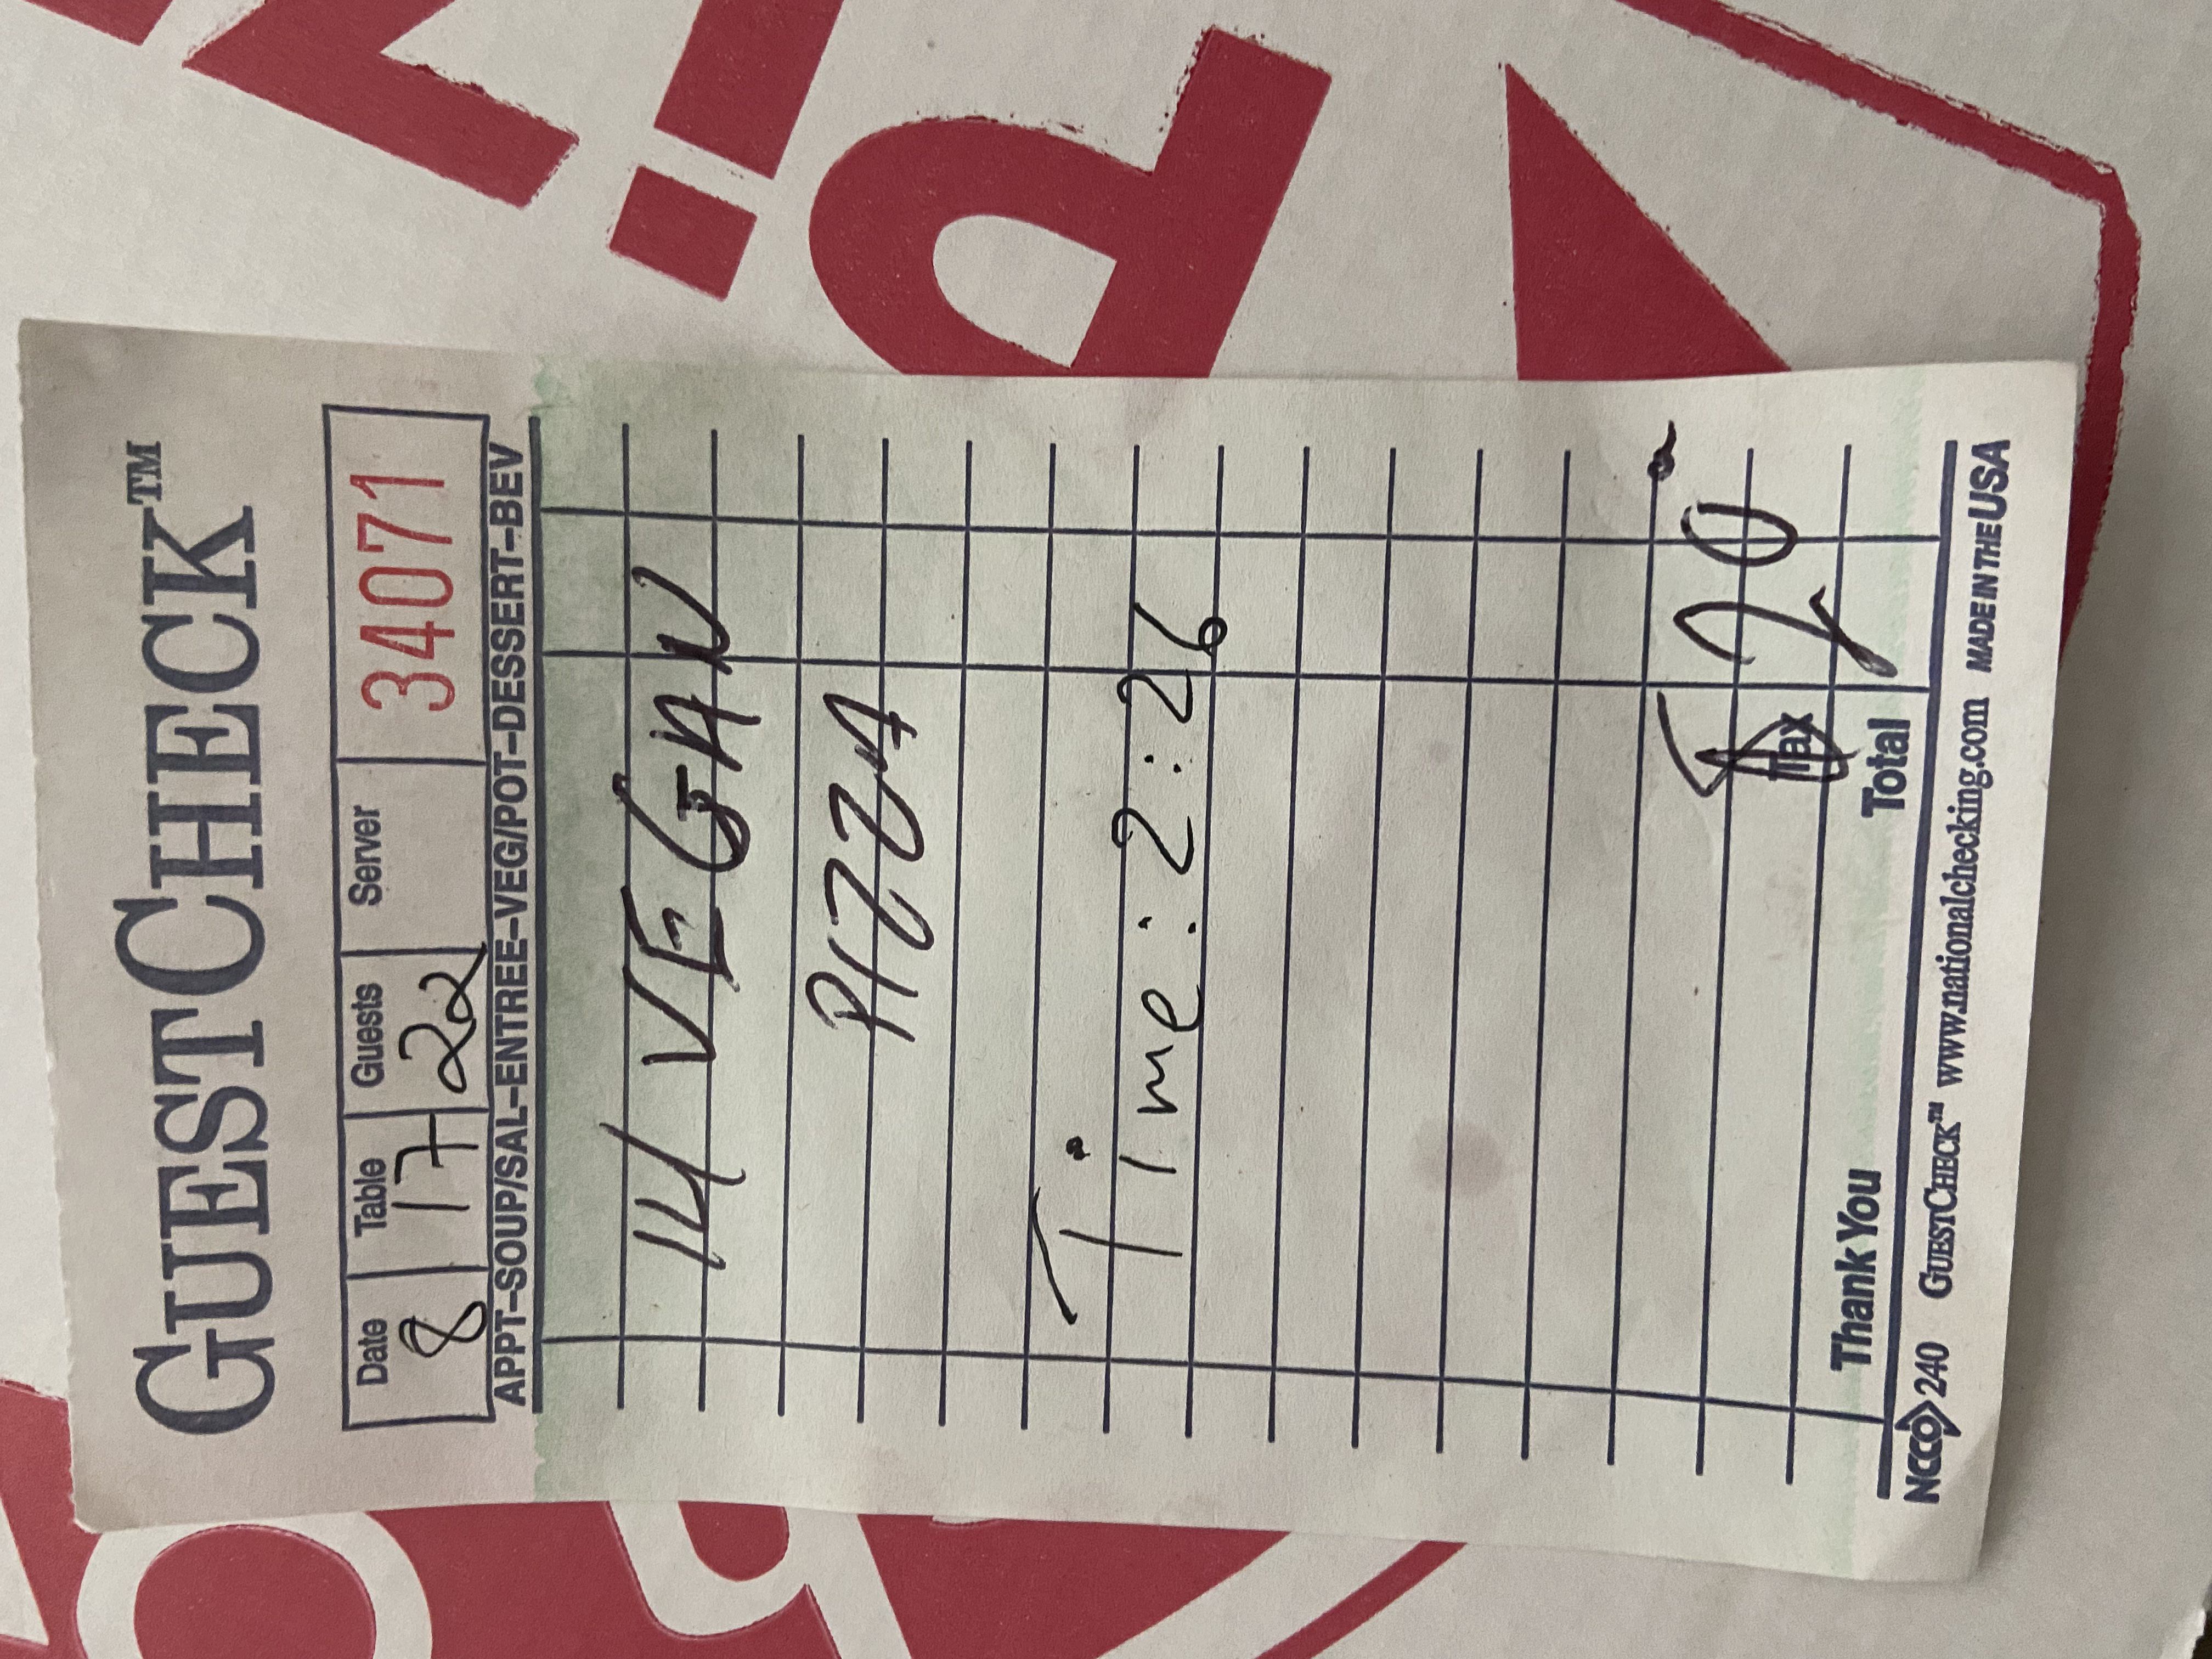 GUESTCHECK™
Date Table Guests Server 34071
8 17 22
APPT–SOUP/SAL–ENTREE–VEG/POT–DESSERT–BEV
14 VEGAN
PIZZA
Time: 2:26
Tax $20
Thank You Total
NCCO 240 GUESTCHECK™ www.nationalchecking.com MADE IN THE USA